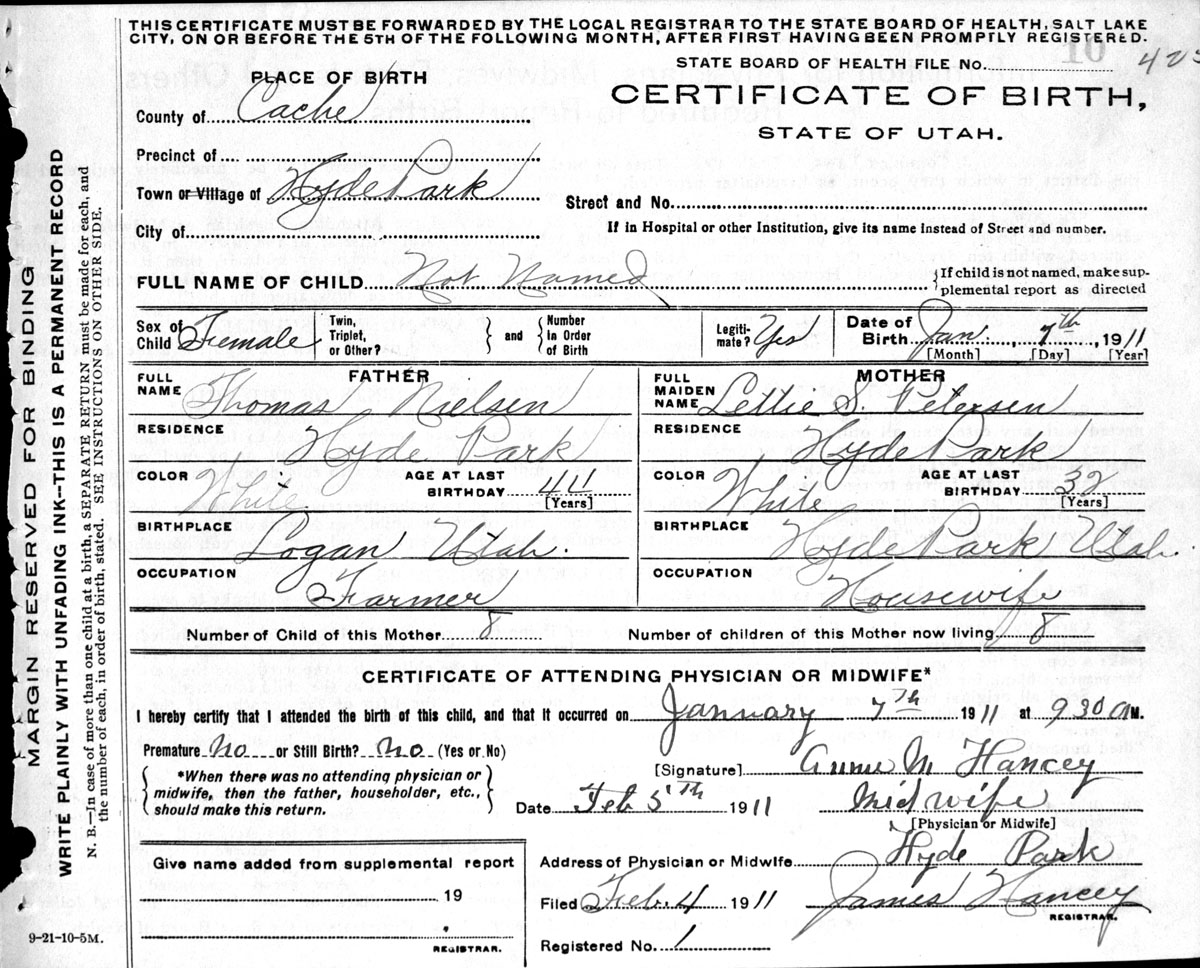 THIS CERTIFICATE MUST BE FORWARDED BY THE LOCAL REGISTRAR TO THE STATE BOARD OF HEALTH, SALT LAKE
CITY, ON OR BEFORE THE 5TH OF THE FOLLOWING MONTH, AFTER FIRST HAVING BEEN PROMPTLY REGISTERED.
STATE BOARD OF HEALTH FILE No. 10
PLACE OF BIRTH
CERTIFICATE OF BIRTH,
County of Cache
STATE OF UTAH.
Precinct of
Town or Village of Hyde Park
Street and No.
City of
If in Hospital or other Institution, give its name instead of Street and number.
FULL NAME OF CHILD Not Named {If child is not named, make sup-
plemental report as directed
Sex of Child Female Twin, Triplet, or Other? } and { Number in Order of Birth Legiti-mate? Yes Date of Birth Jan. 7th 1911
[Month] [Day] [Year]
FATHER MOTHER
FULL NAME Thomas Nielsen FULL MAIDEN NAME Lettie S. Petersen
RESIDENCE Hyde Park RESIDENCE Hyde Park
COLOR White AGE AT LAST BIRTHDAY 44 [Years] COLOR White AGE AT LAST BIRTHDAY 32 [Years]
BIRTHPLACE Logan Utah. BIRTHPLACE Hyde Park Utah.
OCCUPATION Farmer OCCUPATION Housewife
Number of Child of this Mother 8 Number of children of this Mother now living 8
CERTIFICATE OF ATTENDING PHYSICIAN OR MIDWIFE*
I hereby certify that I attended the birth of this child, and that it occurred on January 7th 1911 at 9 30 AM.
Premature No or Still Birth? No (Yes or No)
{ *When there was no attending physician or
midwife, then the father, householder, etc.,
should make this return. }
[Signature] Annie M Hancey
Date Feb 5th 1911 Midwife
[Physician or Midwife]
Address of Physician or Midwife Hyde Park
Filed Feb. 4 1911 James Hancey
REGISTRAR.
Registered No. 1
Give name added from supplemental report
19
REGISTRAR.
9-21-10-5M.
MARGIN RESERVED FOR BINDING
WRITE PLAINLY WITH UNFADING INK--THIS IS A PERMANENT RECORD
N. B.—In case of more than one child at a birth, a SEPARATE RETURN must be made for each, and
the number of each, in order of birth, stated. SEE INSTRUCTIONS ON OTHER SIDE.